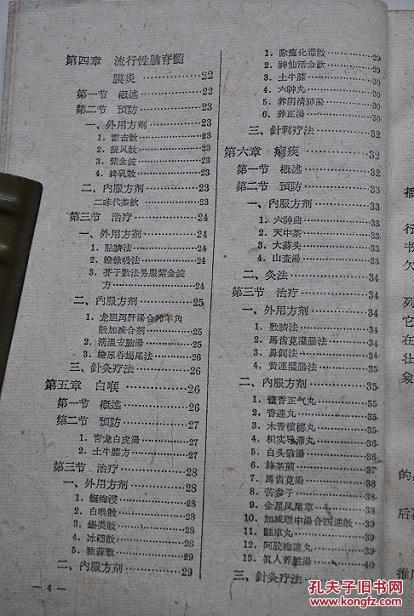 第四章 流行性脑脊髓
膜炎 22
第一节 概述 22
第二节 预防 23
一、外用方剂 23
1. 雷击散 23
2. 搐风散 23
3. 紫金錠 23
4. 23
二、内服方剂 23
二味代茶飲 23
第三节 治疗 24
一、外用方剂 24
1. 點臍法 24
2. 24
3. 芥子敷法另服紫金錠
方 24
二、内服方剂 25
1. 龙胆泻肝湯合羚羊角
散加减合剂 25
2. 清温安脑湯 25
3. 26
三、針灸疗法 26
第五章 白喉 26
第一节 概述 26
第二节 预防 27
1. 青龙白虎湯 27
2. 土牛膝方 27
第三节 治疗 28
一、外用方剂 28
1. 28
2. 白喉散 28
3. 錫类散 28
4. 冰硼散 28
5. 29
二、内服方剂 29
— 4 —
1. 除瘟化毒散 29
2. 神仙活命飲 29
3. 土牛膝 30
4. 六神丸 30
5. 养阴清肺湯 30
6. 养正湯 30
三、針刺疗法 32
第六章 痢疾 32
第一节 概述 32
第二节 预防 33
一、内服方剂 33
1. 六神曲 33
2. 天中茶 33
3. 大蒜头 33
4. 山查湯 34
二、灸法 34
第三节 治疗 34
一、外用方剂 34
1. 敷臍法 34
2. 馬齿莧灌腸法 34
3. 鼻飼法 34
4. 黄連灌腸法 34
二、内服方剂 35
1. 藿香正气丸 35
2. 香連丸 35
3. 木香檳榔丸 35
4. 枳实导滞丸 35
5. 白头翁湯 35
6. 綠茶煎 35
7. 馬齿莧湯
8. 苦参子 38
9. 金星凤尾草 38
10. 加减理中湯合四逆散 39
11. 駐車丸 39
12. 阿胶梅連丸 39
13. 眞人养脏湯 40
三、針灸疗法
孔夫子旧书网